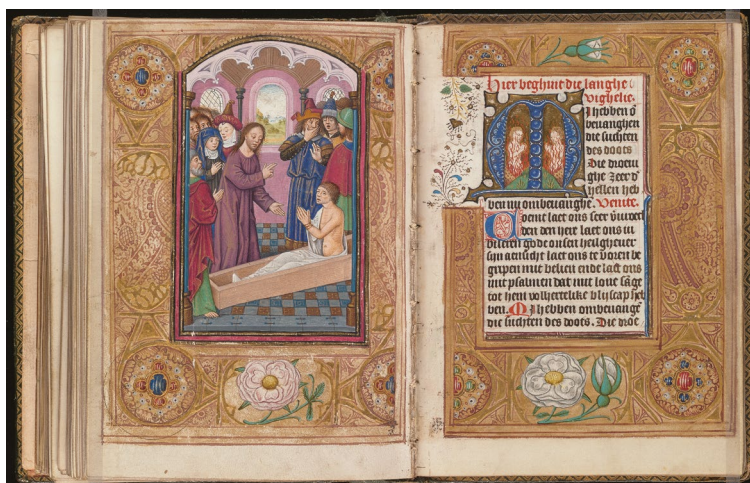 Hier beghint die langhe
vighelie.
M
J hebben ō
beuanghen
die suchten
des doots
Die droeui
ghe zeer d
hellen heb
ben my ombeuanghe. Venite.
Coemt laet ons seer
den den here laet ons iu
bileren gode onsen heilgheuer
sijn aensicht laet ons te voren be
gripen mit belien ende laet ons
mit psalmen dat mit loue sage
tot hem volhertelike bliscap heb
ben. Mi hebben ombeuangē
die suchten des doots. Die droe